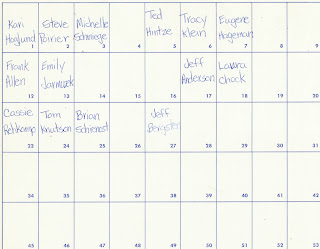 Kari Steve Michelle Ted Tracy Eugene
Hoglund Poirier Schmiege Hintze Klein Hageman
1 2 3 4 5 6 7 8 9
Frank Emily Jeff Laura
Allen Anderson Chock
12 13 14 15 16 17 18 19 20
Cassie Tom Brian Jeff
Rehkamp Knutson
23 24 25 26 27 28 29 30 31
34 35 36 37 38 39 40 41 42
45 46 47 48 49 50 51 52 53